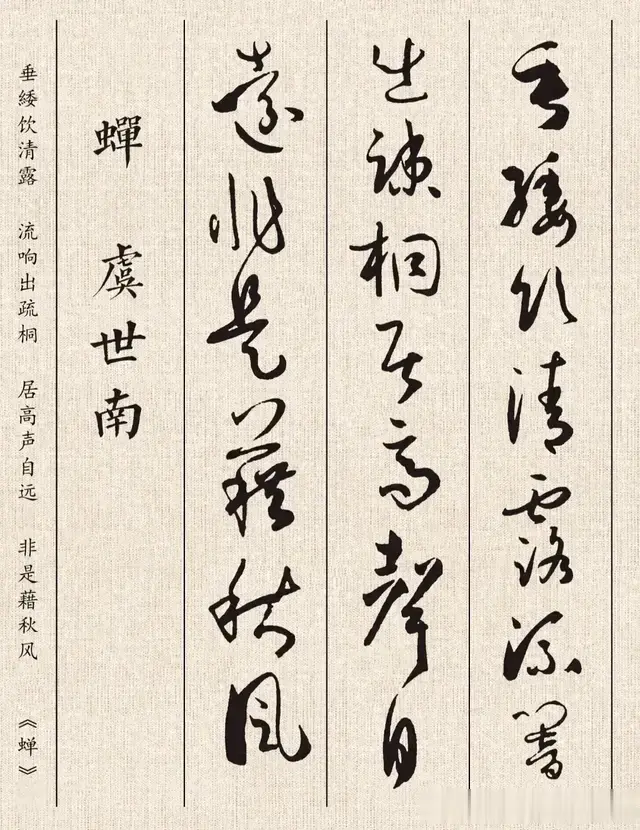 垂緌飲清露流響
出疎桐居高聲自
遠非是藉秋風
蟬 虞世南
垂緌饮清露 流响出疏桐 居高声自远 非是藉秋风 《蝉》